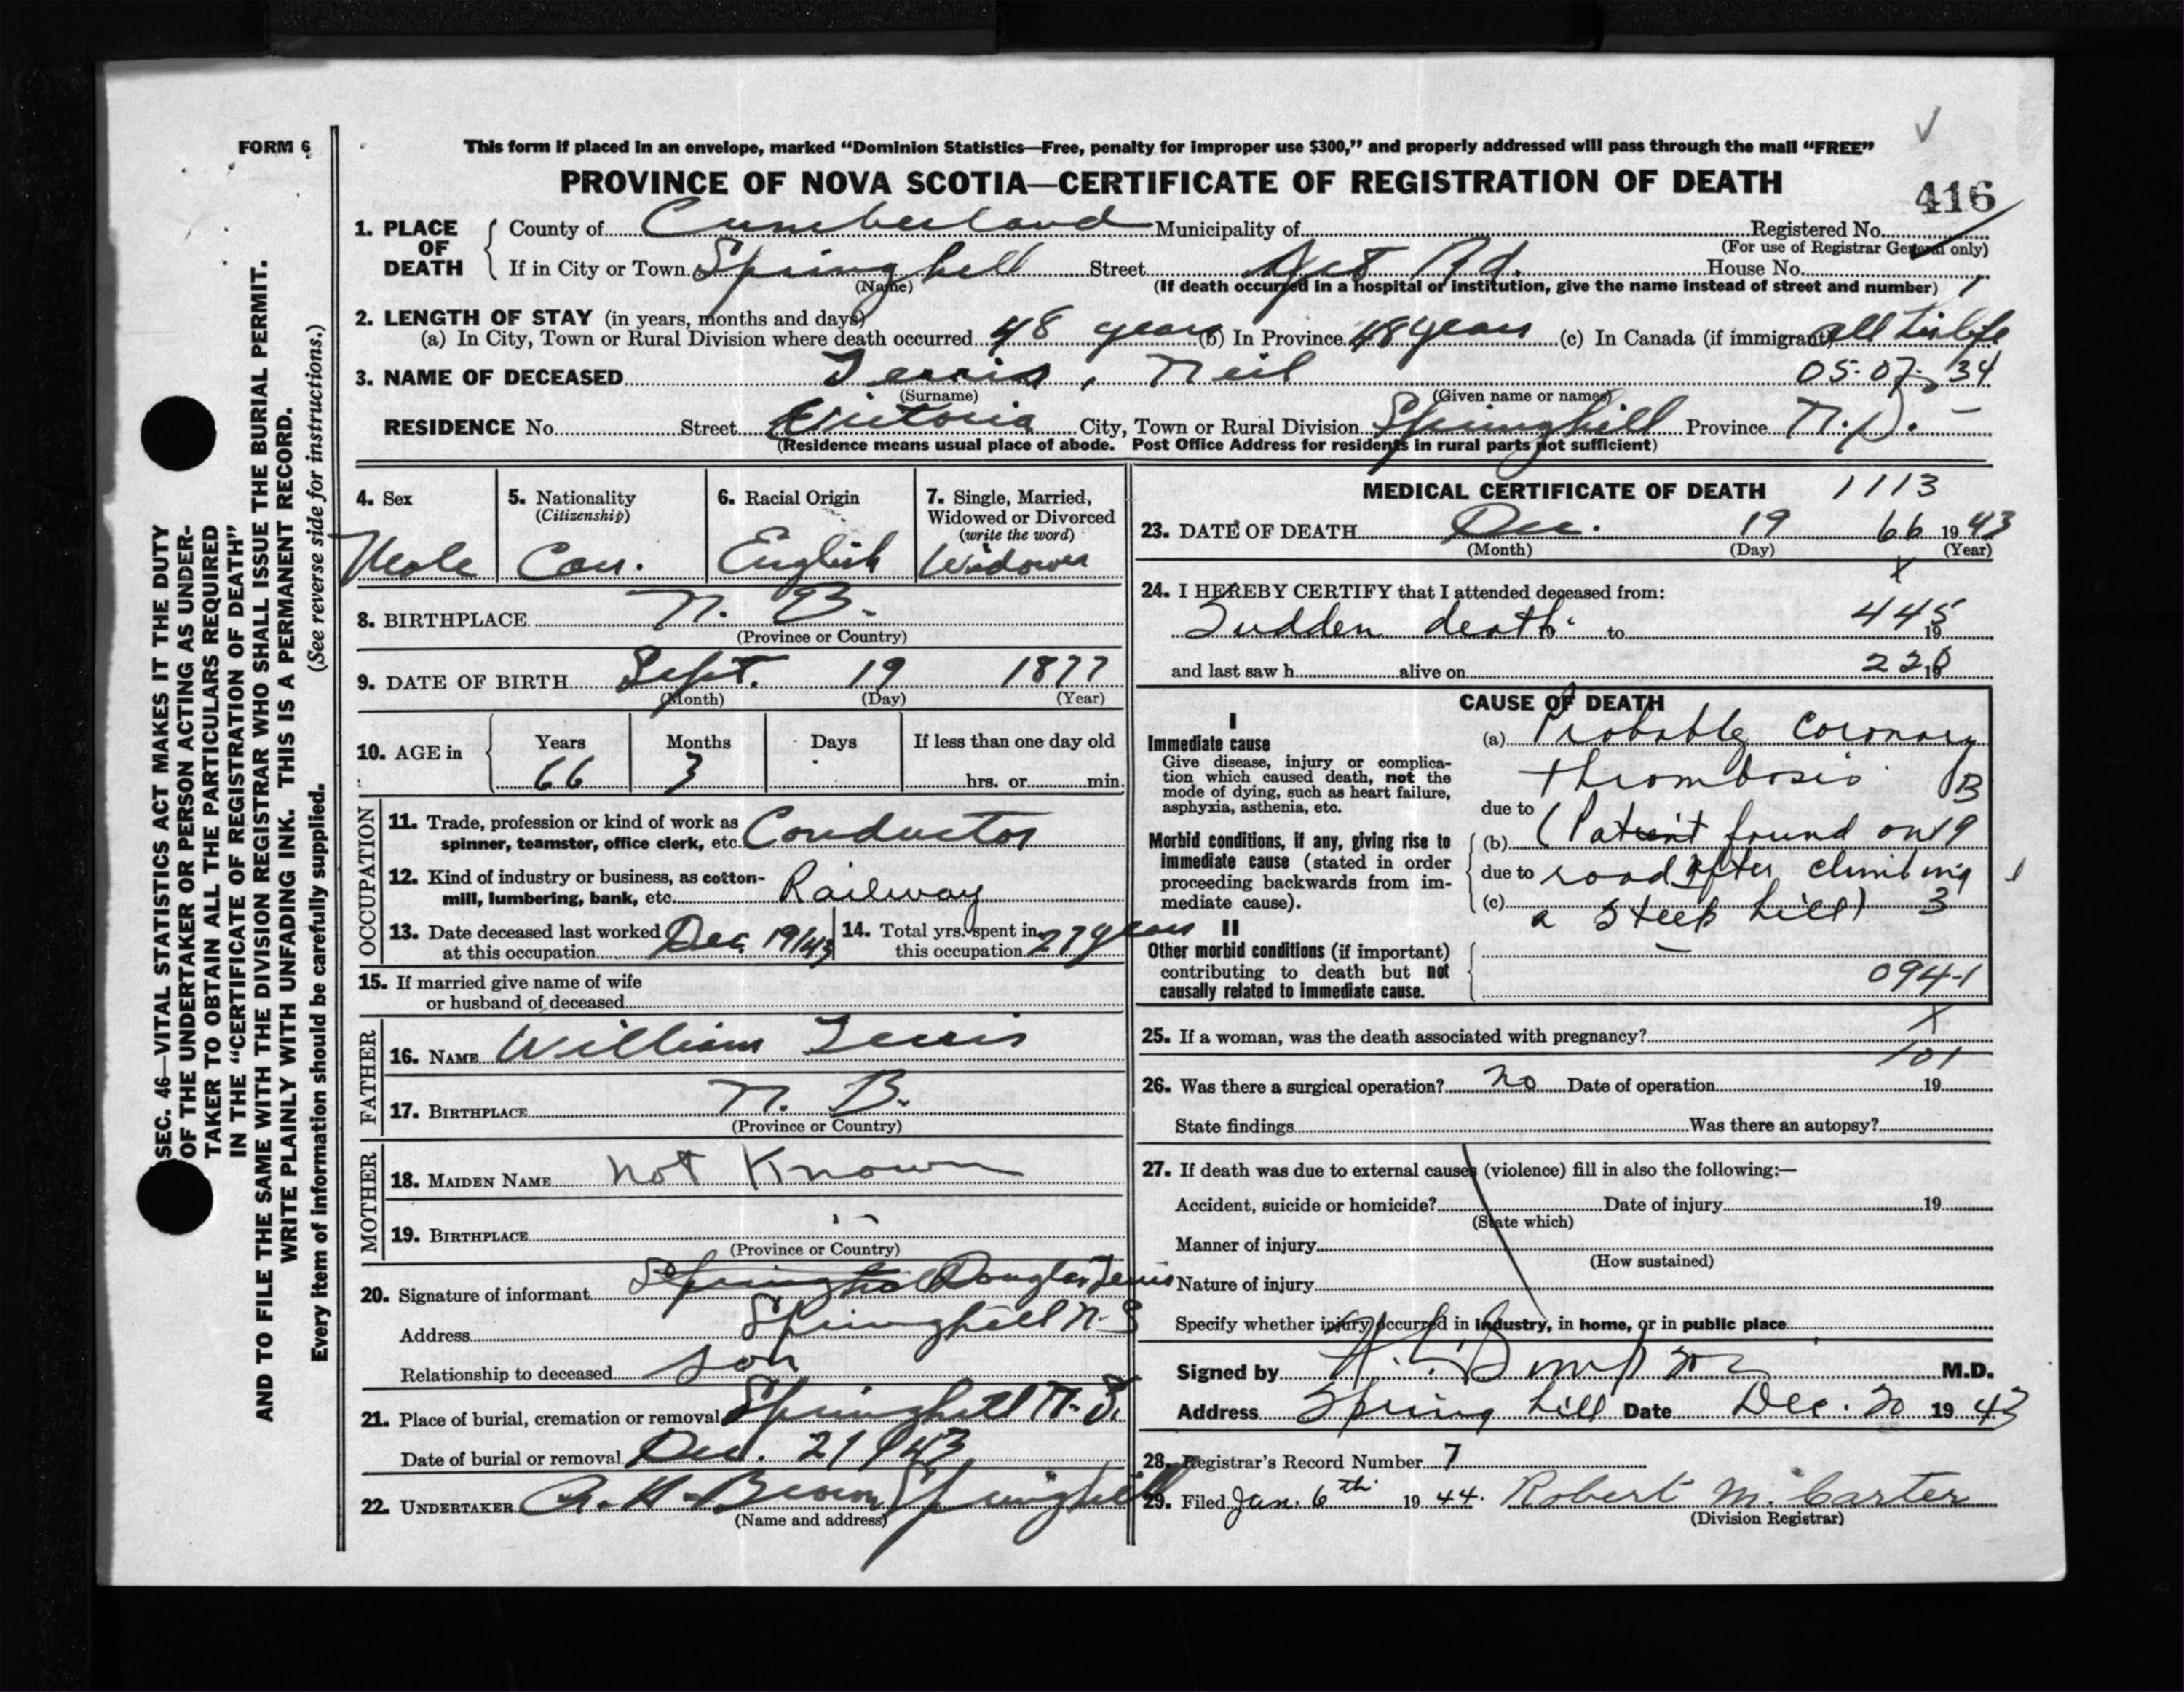 FORM 6
This form if placed in an envelope, marked “Dominion Statistics—Free, penalty for improper use $300,” and properly addressed will pass through the mail “FREE”
PROVINCE OF NOVA SCOTIA—CERTIFICATE OF REGISTRATION OF DEATH
416
1. PLACE OF DEATH
County of Cumberland Municipality of Registered No.
(For use of Registrar General only)
If in City or Town Springhill Street Jct Rd. House No.
(Name) (If death occurred in a hospital or institution, give the name instead of street and number) 1
2. LENGTH OF STAY (in years, months and days)
(a) In City, Town or Rural Division where death occurred 48 years (b) In Province 48 years (c) In Canada (if immigrant) all his life
3. NAME OF DECEASED Terris, Neil 05-07- 34
(Surname) (Given name or names)
RESIDENCE No. Street Victoria City, Town or Rural Division Springhill Province N.S. —
(Residence means usual place of abode. Post Office Address for residents in rural parts not sufficient)
4. Sex
Male
5. Nationality
(Citizenship)
Can.
6. Racial Origin
English
7. Single, Married,
Widowed or Divorced
(write the word)
Widower
8. BIRTHPLACE N. B.
(Province or Country)
9. DATE OF BIRTH Sept. 19 1877
(Month) (Day) (Year)
10. AGE in Years Months Days If less than one day old
66 3 hrs. or min.
OCCUPATION
11. Trade, profession or kind of work as
spinner, teamster, office clerk, etc. Conductor
12. Kind of industry or business, as cotton-
mill, lumbering, bank, etc. Railway
13. Date deceased last worked
at this occupation Dec. 19/43
14. Total yrs. spent in
this occupation 27 years
15. If married give name of wife
or husband of deceased
FATHER
16. NAME William Terris
17. BIRTHPLACE N. B.
(Province or Country)
MOTHER
18. MAIDEN NAME Not Known
19. BIRTHPLACE
(Province or Country)
20. Signature of informant Springhill Douglas Terris
Address Springhill N.S
Relationship to deceased son
21. Place of burial, cremation or removal Springhill N.S.
Date of burial or removal Dec. 21 1943
22. UNDERTAKER A. H. Brown Springhill
(Name and address)
MEDICAL CERTIFICATE OF DEATH 1113
23. DATE OF DEATH Dec. 19 66 1943
(Month) (Day) (Year)
X
24. I HEREBY CERTIFY that I attended deceased from:
Sudden death 19 to 445 19
and last saw h alive on 220 19
CAUSE OF DEATH
I
Immediate cause
Give disease, injury or complica-
tion which caused death, not the
mode of dying, such as heart failure,
asphyxia, asthenia, etc.
(a) Probably Coronary
thrombosis B
due to
Morbid conditions, if any, giving rise to
immediate cause (stated in order
proceeding backwards from im-
mediate cause).
(b) (Patient found on 19
due to road after climbing
(c) a steep hill) 3
II
Other morbid conditions (if important)
contributing to death but not
causally related to immediate cause.
—
094-1
25. If a woman, was the death associated with pregnancy? X
101
26. Was there a surgical operation? no Date of operation 19
State findings Was there an autopsy?
27. If death was due to external causes (violence) fill in also the following:—
Accident, suicide or homicide? Date of injury 19
(State which)
Manner of injury
(How sustained)
Nature of injury
Specify whether injury occurred in industry, in home, or in public place
Signed by M.D.
Address Spring hill Date Dec. 20 1943
28. Registrar's Record Number 7
29. Filed Jan. 6th 1944. Robert M. Carter
(Division Registrar)
SEC. 46—VITAL STATISTICS ACT MAKES IT THE DUTY
OF THE UNDERTAKER OR PERSON ACTING AS UNDER-
TAKER TO OBTAIN ALL THE PARTICULARS REQUIRED
IN THE “CERTIFICATE OF REGISTRATION OF DEATH”
AND TO FILE THE SAME WITH THE DIVISION REGISTRAR WHO SHALL ISSUE THE BURIAL PERMIT.
WRITE PLAINLY WITH UNFADING INK. THIS IS A PERMANENT RECORD.
Every item of information should be carefully supplied. (See reverse side for instructions.)